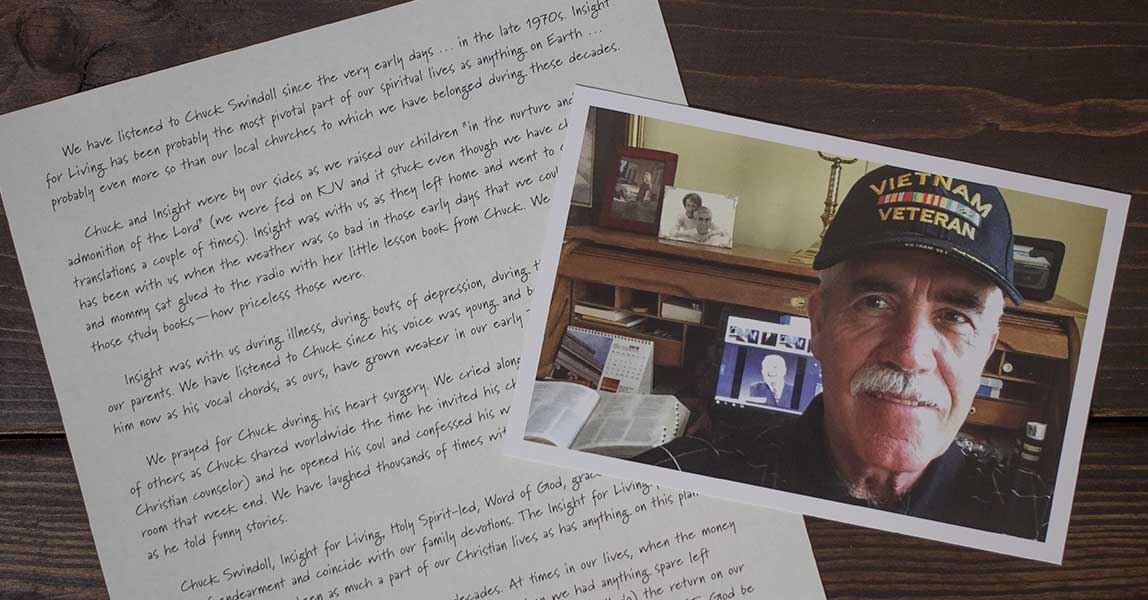 We have listened to Chuck Swindoll since the very early days ... in the late 1970s. Insight
for Living has been probably the most pivotal part of our spiritual lives as anything on Earth ...
probably even more so than our local churches to which we have belonged during these decades.
Chuck and Insight were by our sides as we raised our children "in the nurture and
admonition of the Lord" (we were fed on KJV and it stuck even though we have
translations a couple of times). Insight was with us as they left home and went to
has been with us when the weather was so bad in those early days that we
and mommy sat glued to the radio with her little lesson book from Chuck. We
those study books—how priceless those were.
Insight was with us during illness, during bouts of depression, during
our parents. We have listened to Chuck since his voice was young and
him now as his vocal chords, as ours, have grown weaker in our early
We prayed for Chuck during his heart surgery. We cried
of others as Chuck shared worldwide the time he invited his
Christian counselor) and he opened his soul and confessed his
room that week end. We have laughed thousands of times
as he told funny stories.
Chuck Swindoll, Insight for Living, Holy Spirit-led, Word of God,
and coincide with our family devotions. The Insight for Living
as much a part of our Christian lives as has anything on this
decades. At times in our lives, when the money
we had anything spare left
the return on our
God be
VIETNAM
VETERAN